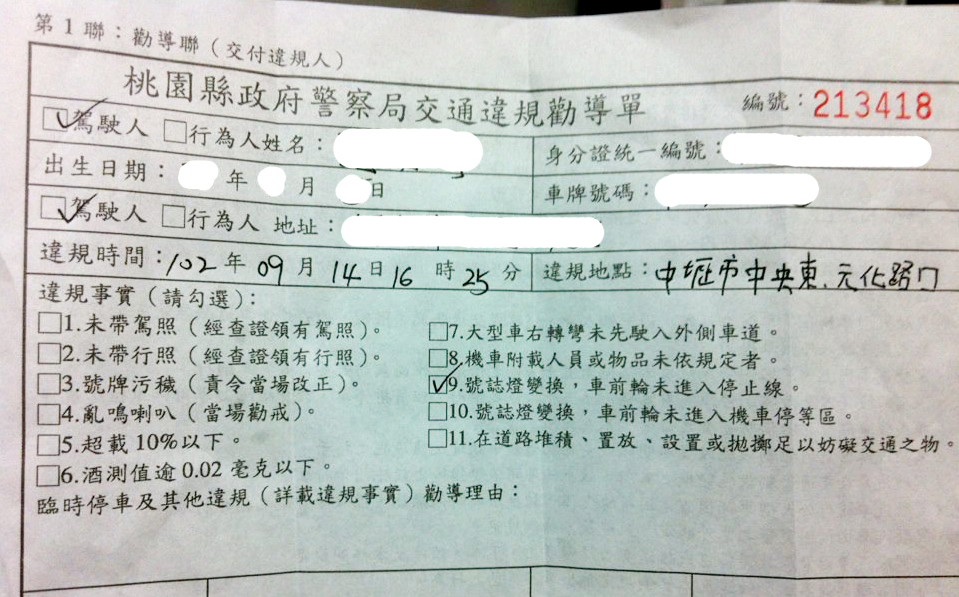 第1聯：勸導聯（交付違規人）
桃園縣政府警察局交通違規勸導單 編號：213418
☑駕駛人 □行為人姓名： 身分證統一編號：
出生日期： 年 月 日 車牌號碼：
☑駕駛人 □行為人 地址：
違規時間：102年09月14日16時25分 違規地點：中壢市中央東.元化路口
違規事實（請勾選）：
□1.未帶駕照（經查證領有駕照）。 □7.大型車右轉彎未先駛入外側車道。
□2.未帶行照（經查證領有行照）。 □8.機車附載人員或物品未依規定者。
□3.號牌污穢（責令當場改正）。 ☑9.號誌燈變換，車前輪未進入停止線。
□4.亂鳴喇叭（當場勸戒）。 □10.號誌燈變換，車前輪未進入機車停等區。
□5.超載10%以下。 □11.在道路堆積、置放、設置或拋擲足以妨礙交通之物。
□6.酒測值逾0.02毫克以下。
臨時停車及其他違規（詳載違規事實）勸導理由：